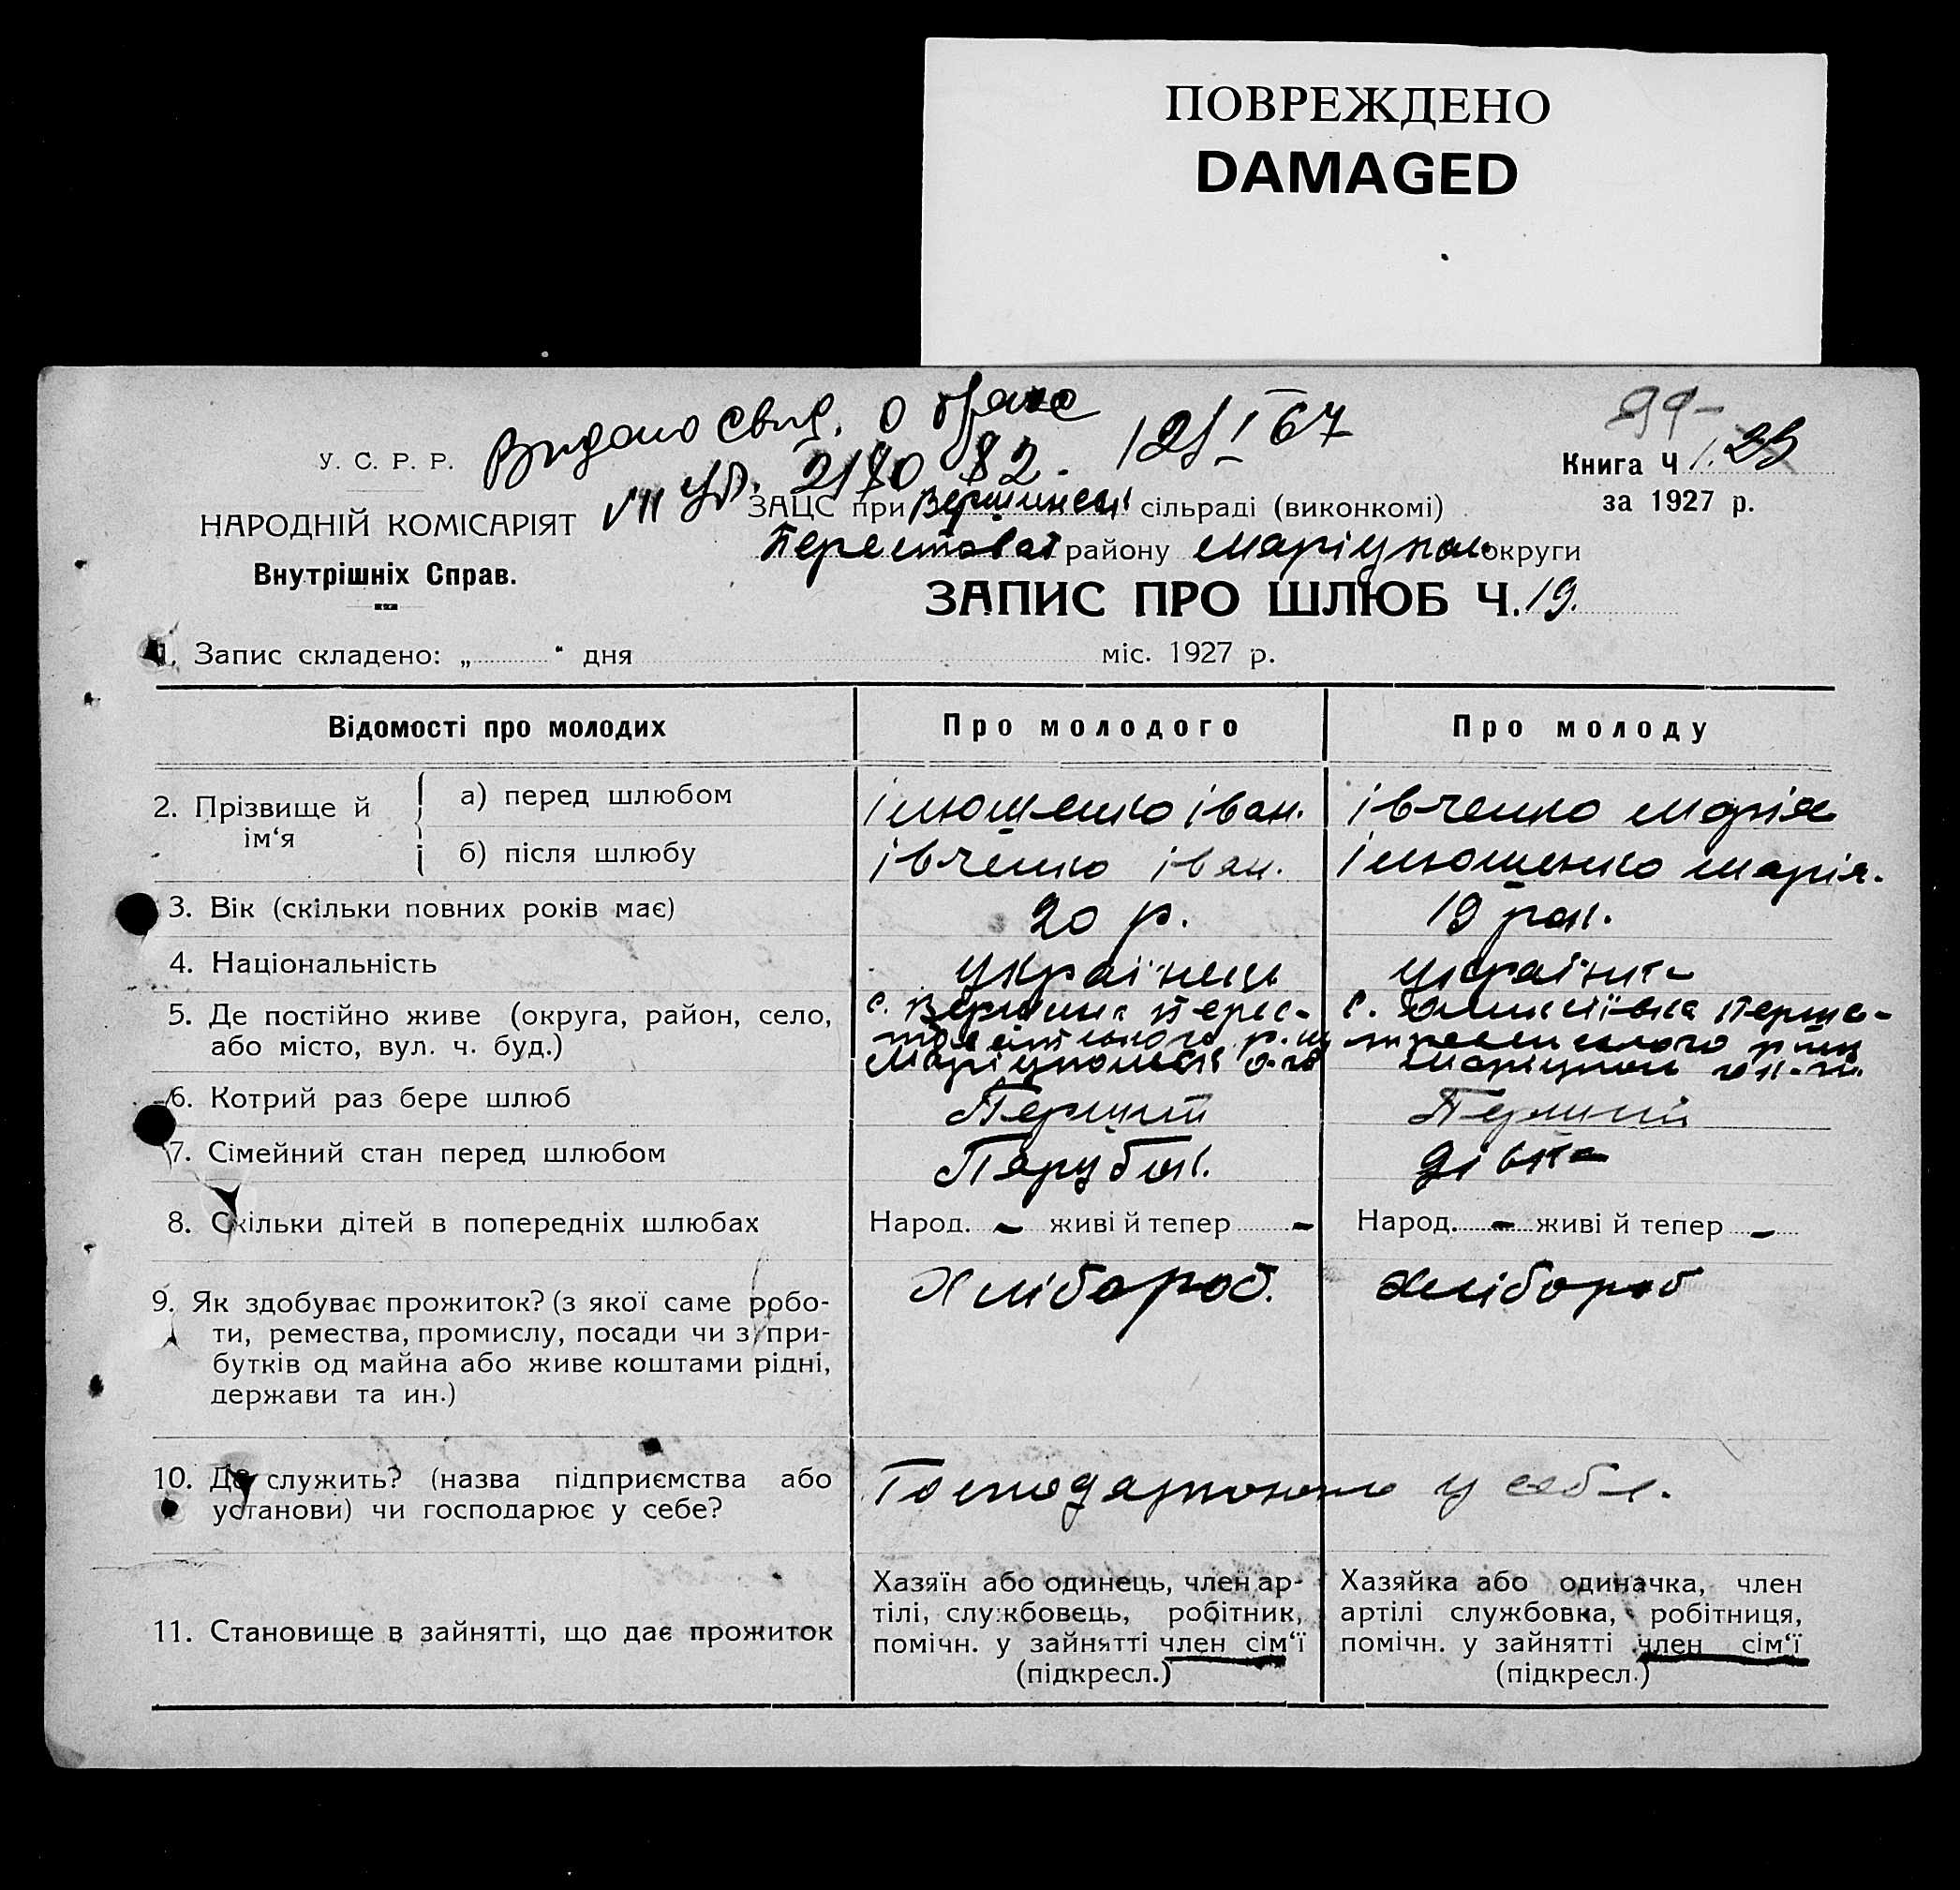 ПОВРЕЖДЕНО
DAMAGED
99-
Видано свид. о браке 12/I 67
VII УБ. 2180 82.
У. С. Р. Р.
НАРОДНІЙ КОМІСАРІЯТ
Внутрішніх Справ.
Книга Ч 1.
за 1927 р.
ЗАЦС при сільраді (виконкомі)
району Маріупол округи
ЗАПИС ПРО ШЛЮБ Ч. 19.
1. Запис складено: „ “ дня міс. 1927 р.
Відомості про молодих Про молодого Про молоду
2. Прізвище й ім‘я
а) перед шлюбом Ілюшенко Іван. Івченко Марія
б) після шлюбу Івченко Іван. Ілюшенко Марія.
3. Вік (скільки повних років має) 20 р. 19 рок.
4. Національність українець українка
5. Де постійно живе (округа, район, село, с. Вершина с.
або місто, вул. ч. буд.)
6. Котрий раз бере шлюб Перший Перший
7. Сімейний стан перед шлюбом Парубок. дівка
8. Скільки дітей в попередніх шлюбах Народ. - живі й тепер - Народ. - живі й тепер -
9. Як здобуває прожиток? (з якої саме робо- Хлібороб. Хлібороб
ти, ремества, промислу, посади чи з при-
бутків од майна або живе коштами рідні,
держави та ин.)
10. Де служить? (назва підприємства або
установи) чи господарює у себе? Господарюють у себе.
11. Становище в зайнятті, що дає прожиток
Хазяїн або одинець, член ар-
тілі, службовець, робітник,
помічн. у зайнятті член сім‘ї
(підкресл.)
Хазяйка або одиначка, член
артілі службовка, робітниця,
помічн. у зайнятті член сім‘ї
(підкресл.)